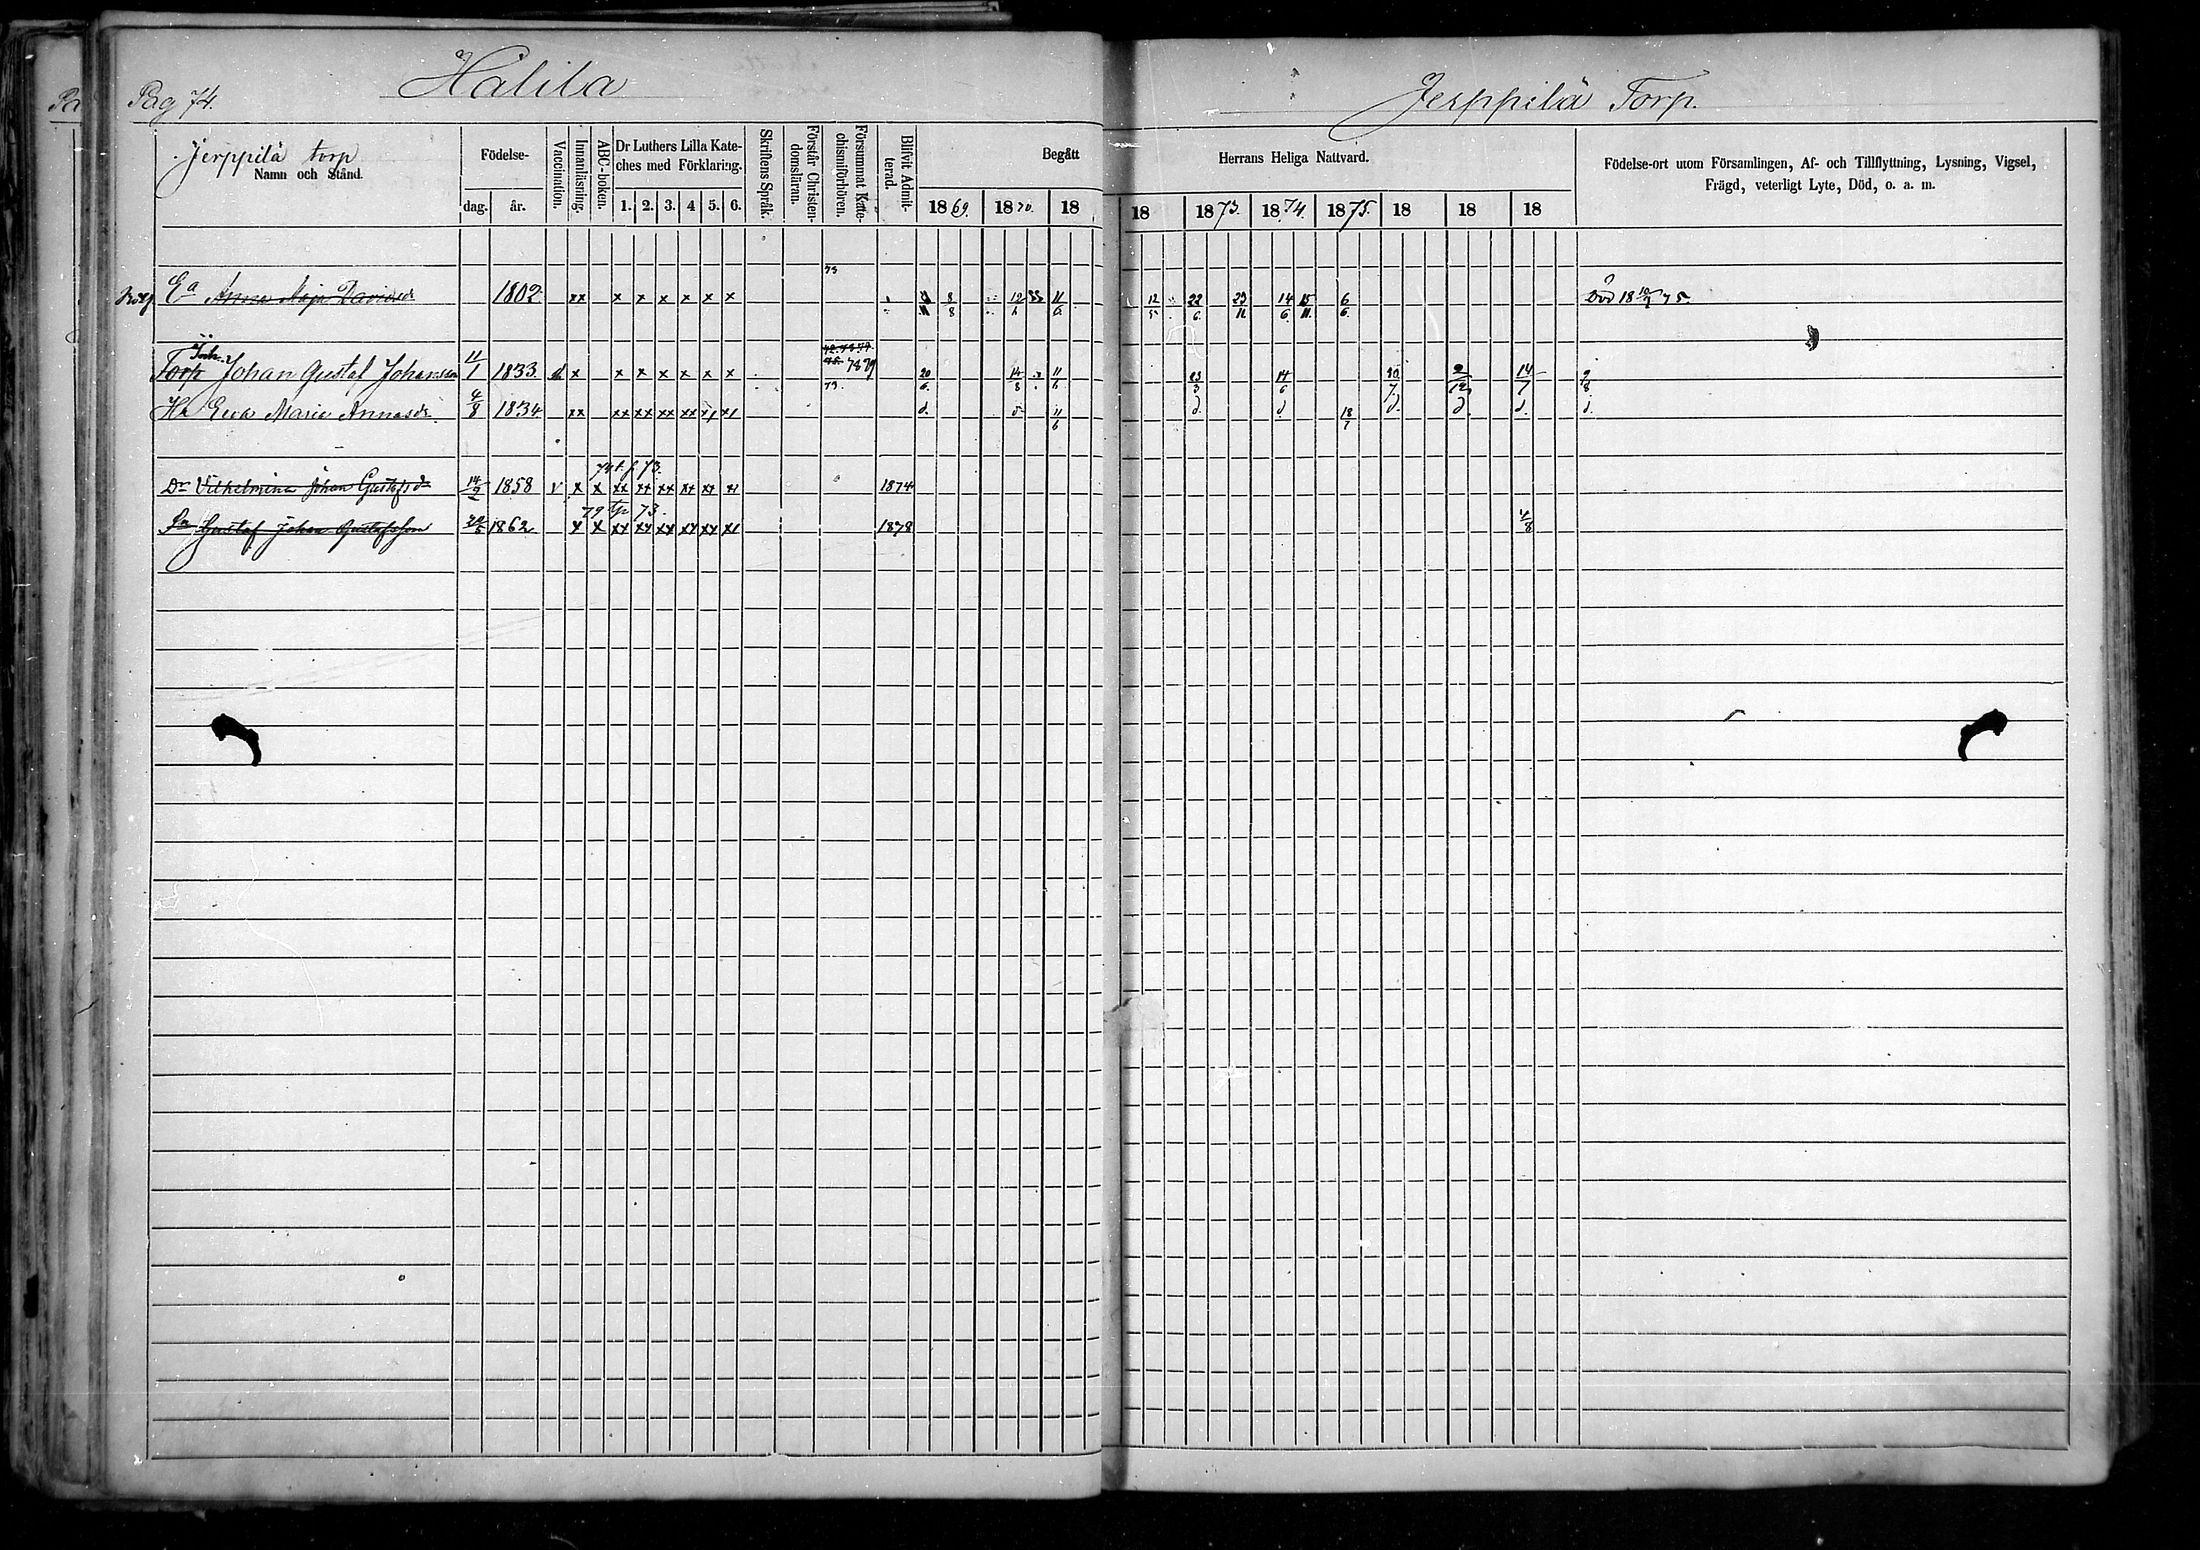 Pag 74. Halila Jerppilä Torp.
Jerppilä torp
Namn och Stånd.
Födelse-
dag. år.
Vaccination.
Innanläsning.
ABC-boken.
Dr Luthers Lilla Kate-
ches med Förklaring.
1. 2. 3. 4 5. 6.
Skriftens Språk.
Förstår Christen-
domsläran.
Försummat Kate-
chismiförhören.
Blifvit Admit-
terad.
Begått Herrans Heliga Nattvard.
1869. 1870. 18 18 1873. 1874. 1875. 18 18 18
Födelse-ort utom Församlingen, Af- och Tillflyttning, Lysning, Vigsel,
Frägd, veterligt Lyte, Död, o. a. m.
73
Ea Anna Maja Davidsd 1802 xx x x x x x x 8/8 11/6 12/5 22/6 23/11 14/6 15/11 6/6 Död 75.
Torp Johan Gustaf Johansson 11/1 1833 x x x x x x x 78 79 20/6 14/8 11/6 23/3 14/6 20/7 2/12 14/7 9/8
73.
Ha Eva Maria Annasdr. 4/8 1834 xx xx xx xx xx x1 x1 d. 11/6 d. d 18/7 d d d. d.
74 t. f 73.
Dr Vilhelmina Johan Gustafsdr 14/2 1858 v x x xx xx xx xx xx x1 1874
79 73.
Sn Gustaf Johan Gustafsson 1862 x x xx xx xx xx xx x1 1878 4/8